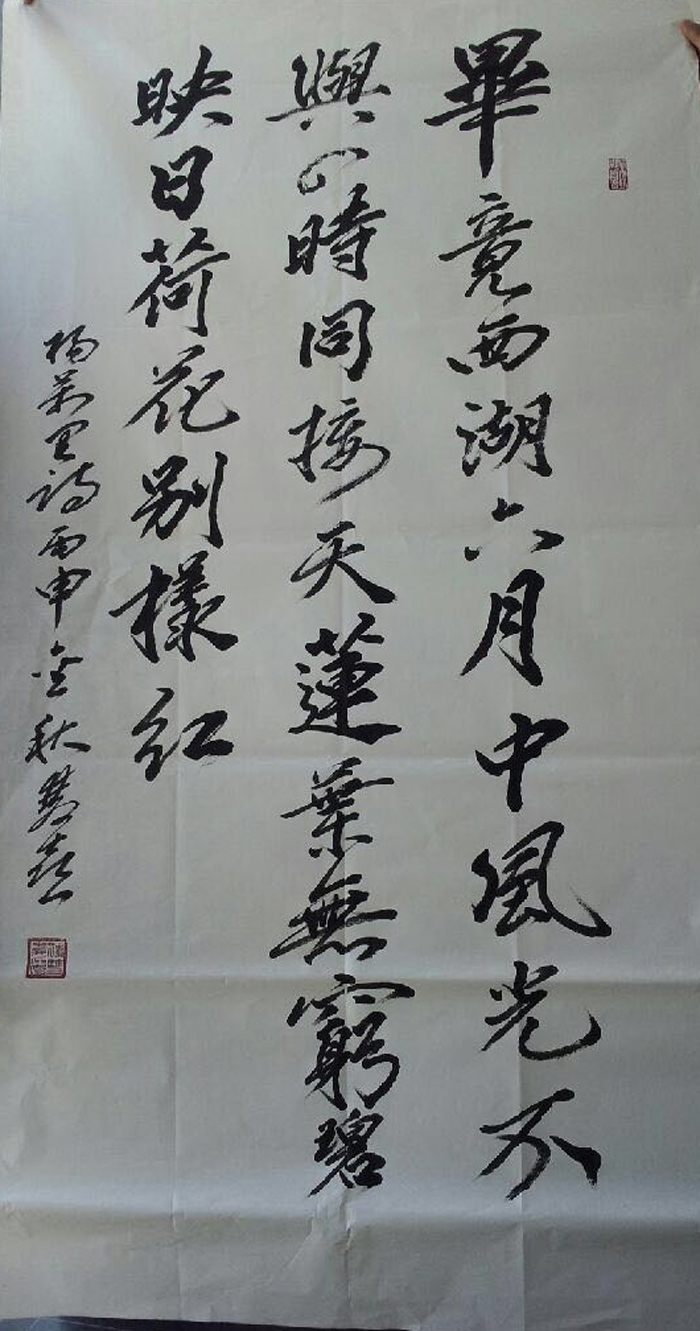 畢竟西湖六月中風光不
與四時同接天蓮葉無窮碧
映日荷花別樣紅
楊萬里詩丙申金秋雙喜